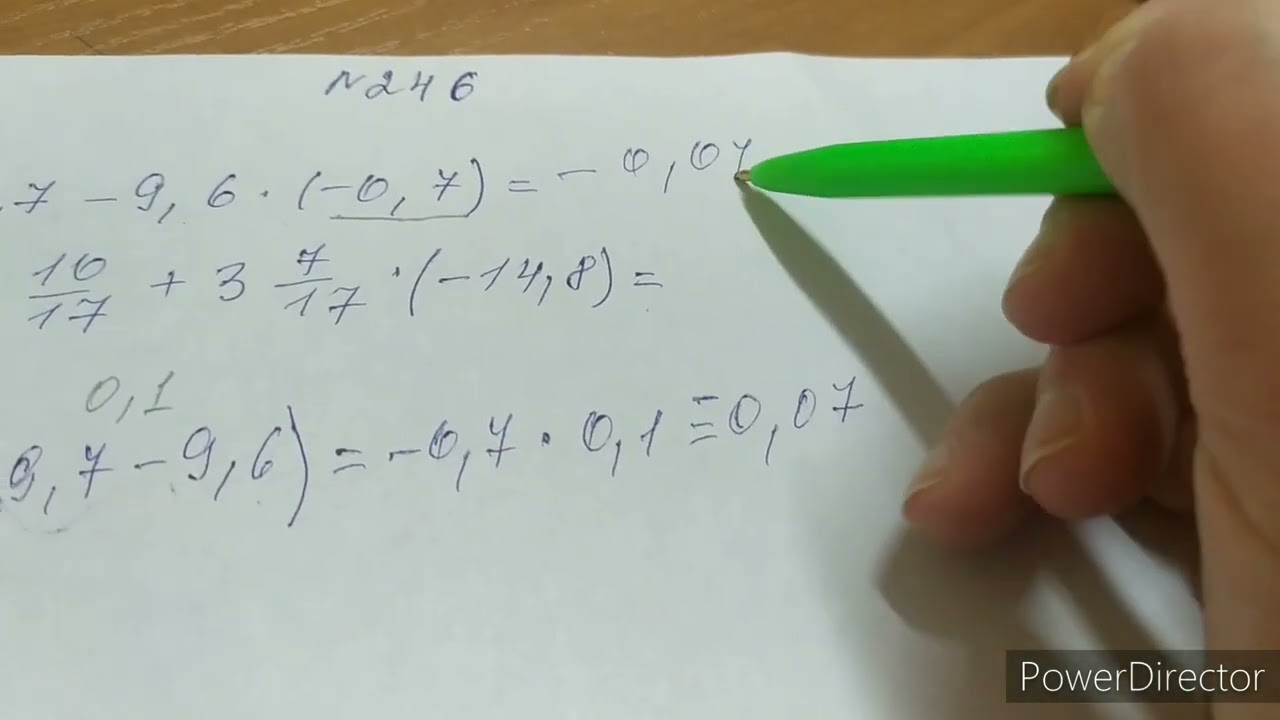 N246
,7 - 9,6 · (-0,7) = - 0,07
10/17 + 3 7/17 · (-14,8) =
0,1
9,7 - 9,6) = -0,7 · 0,1 = -0,07
PowerDirector